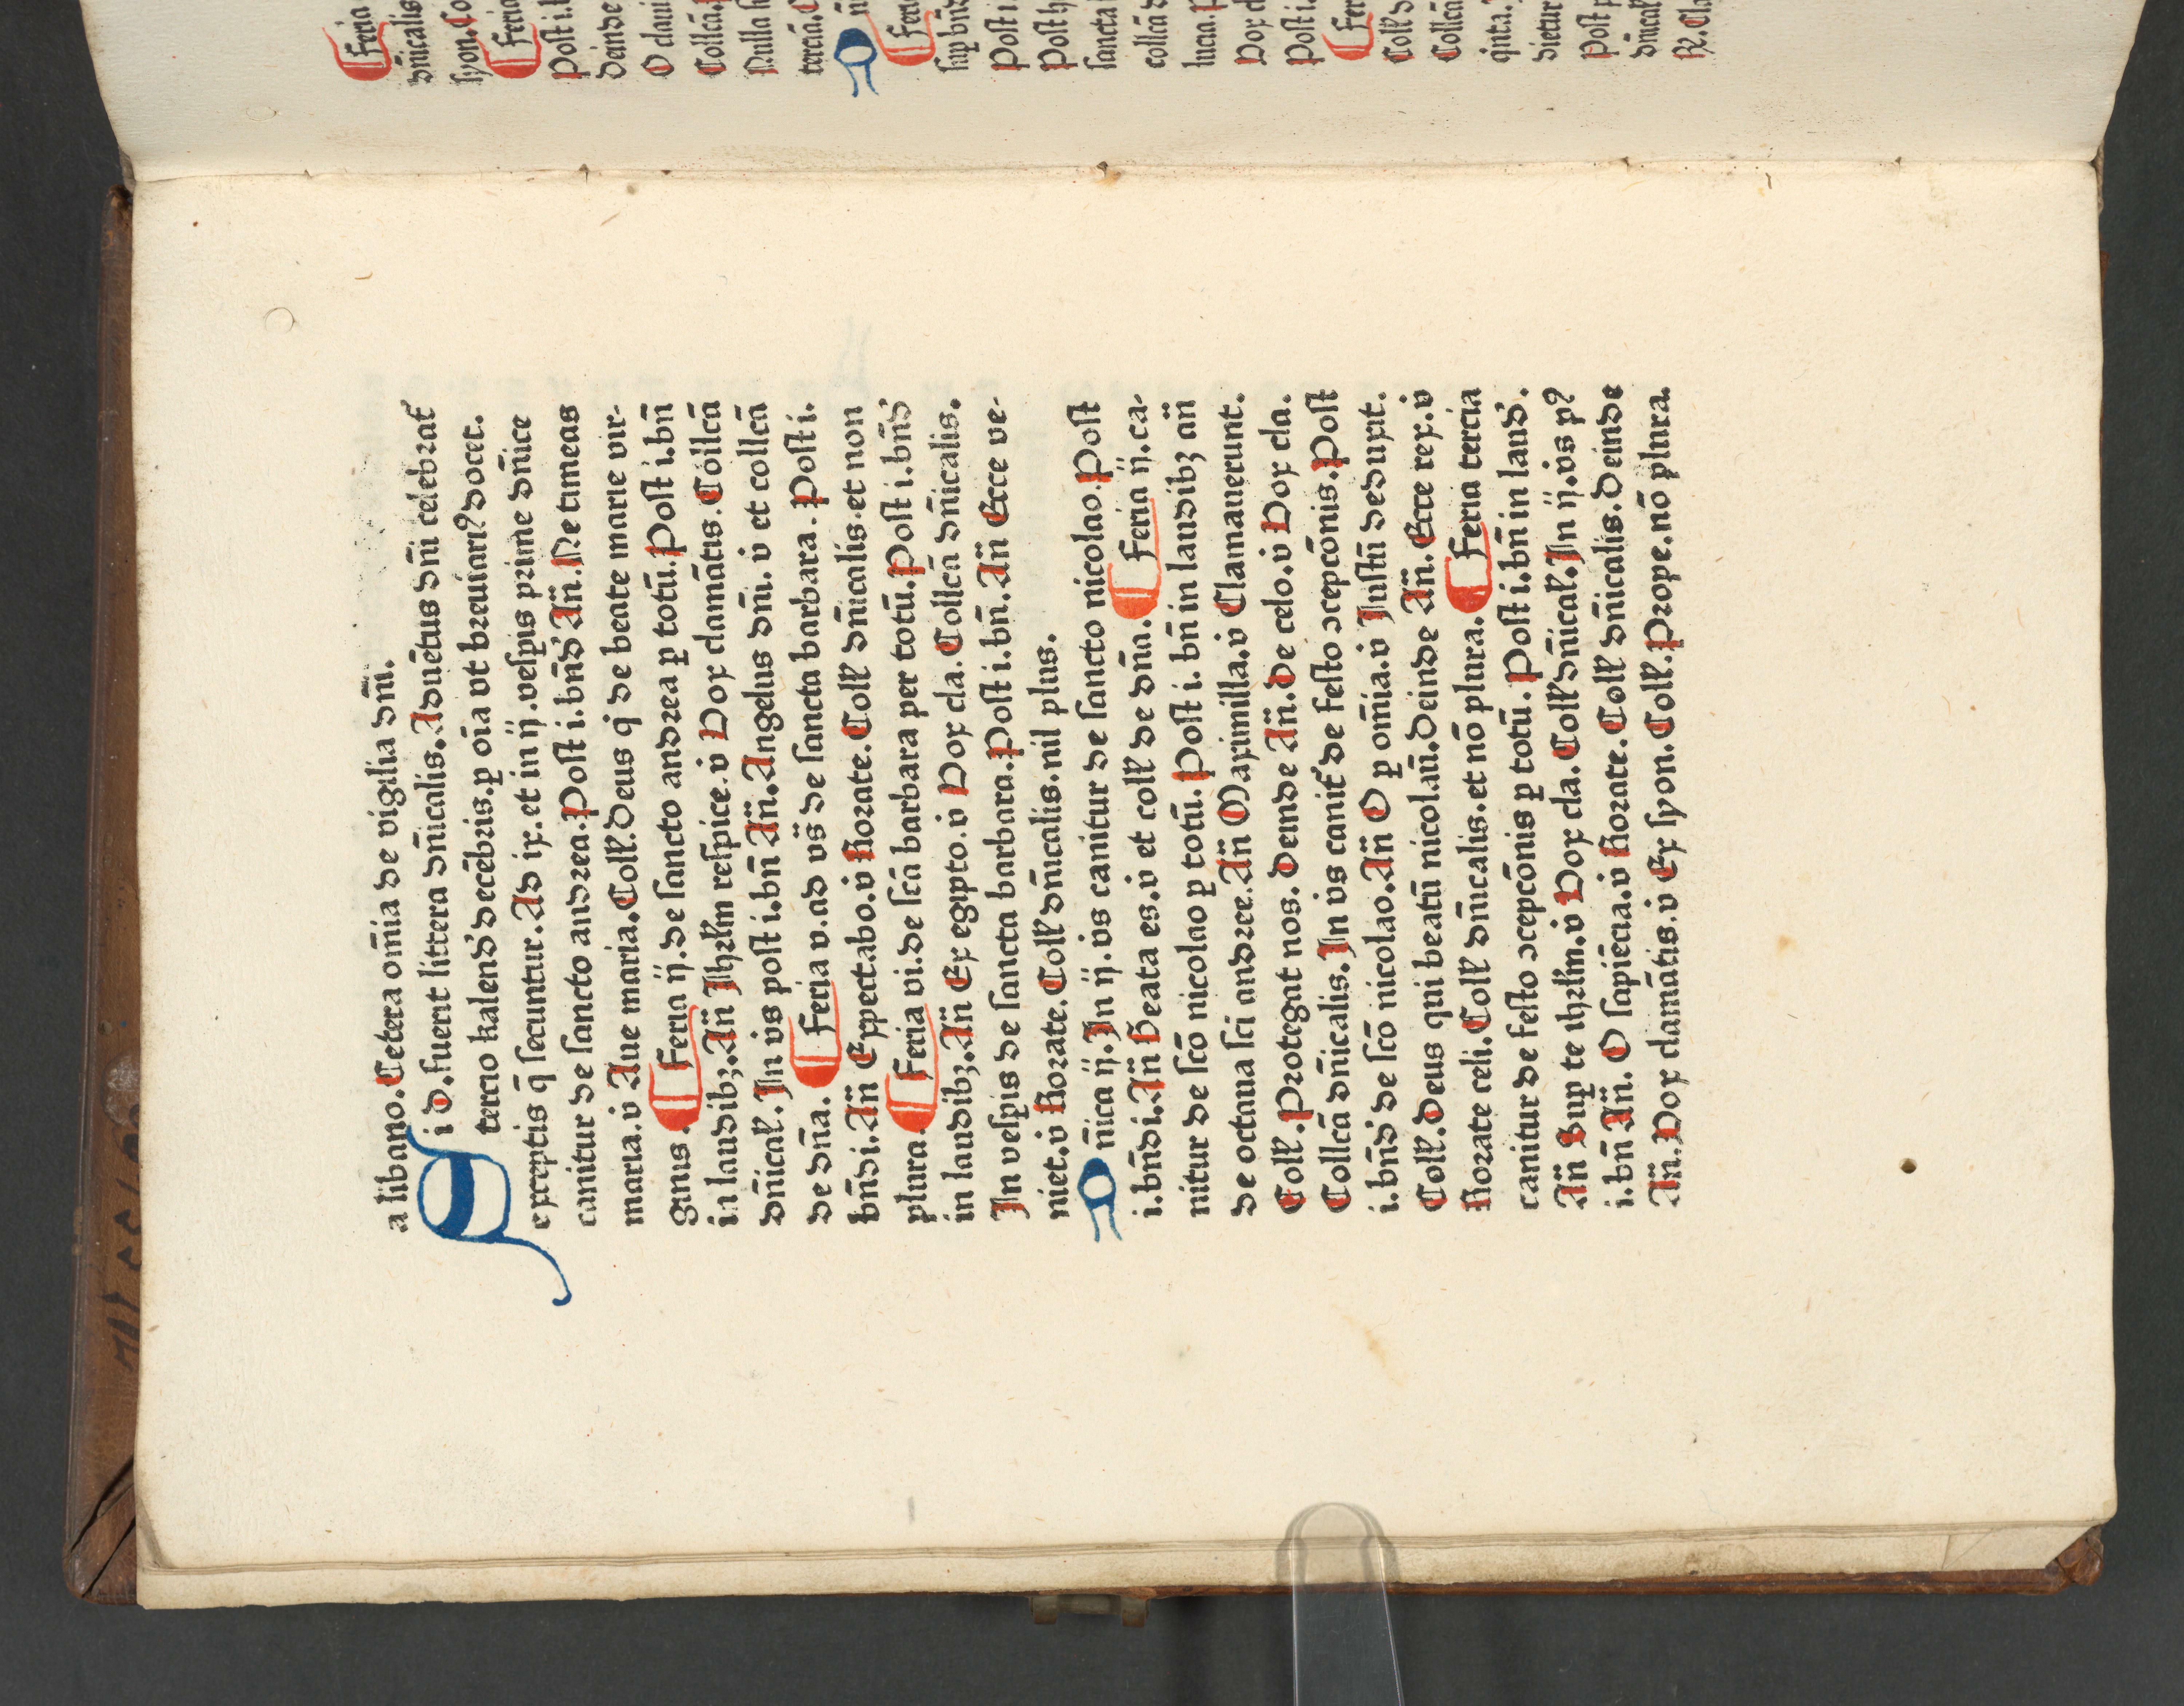 a libano. Cetera om̄ia de vigilia dn̄i.
Si D. fuerit littera dn̄icalis. Aduētus dn̄i celebrat̄
tercio kalend' decēbris. ꝑ oīa vt breuiariꝰ docet.
exceptis q̄ secuntur. Ad ix. et in ij. vesꝑis prime dn̄ice
canitur de sancto andrea. Post i. bn̄d' An̄. Ne timeas
maria. v̇ Aue maria. Coll'. Deus q' de beate marie vir-
ginis. Feria ij. de sancto andrea ꝑ totū. Post i. bn̄
in laudibꝫ. An̄ Jhrl'm respice. v̇ Vox clamātis. Collcā
dn̄ical'. In v̇s post i. bn̄ An̄. Angelus dn̄i. v̇ et collcā
de dn̄a. Feria v. ad vs̄ de sancta barbara. Post i.
bn̄di. An̄ Expectabo. v̇ Rorate. Coll' dn̄icalis. et non
plura. Feria vi. de sc̄a barbara per totū. Post i. bn̄d'
in laudibꝫ. An̄ Ex egipto. v̇ Vox cla. Collcā dn̄icalis.
In vesꝑis de sancta barbara. Post i. bn̄. An̄ Ecce ve-
niet. v̇ Rorate. Coll' dn̄icalis. nil plus.
Dn̄ica ij. In ij. v̇s canitur de sancto nicolao. Post
i. bn̄di. An̄ Beata es. v̇ et coll' de dn̄a. Feria ij. ca-
nitur de sc̄o nicolao ꝑ totū. Post i. bn̄ in laudibꝫ an̄
de octaua sci andree. An̄ Maximilla. v̇ Clamauerunt.
Coll'. Protegat nos. Deinde An̄. De celo. v̇ Vox cla.
Collcā dn̄icalis. In v̇s canit̄ de festo ↄcepcōnis. Post
i. bn̄d' de sc̄o nicolao. An̄ O ꝑ om̄ia. v̇ Justū deduxit.
Coll'. Deus qui beatū nicolaū. Deinde An̄. Ecce rex. v̇
Rorate celi. Coll' dn̄icalis. et nō plura. Feria tercia
canitur de festo ↄcepcōnis ꝑ totū. Post i. bn̄ in laud'.
An̄ Suꝑ te ihrl'm. v̇ Vox cla. Coll' dn̄ical'. In ij. v̇s pꝰ
i. bn̄ An̄. O sapiēcia. v̇ Rorate. Coll' dn̄icalis. Deinde
An̄. Vox clamātis. v̇ Ex syon. Coll'. Prope. nō plura.